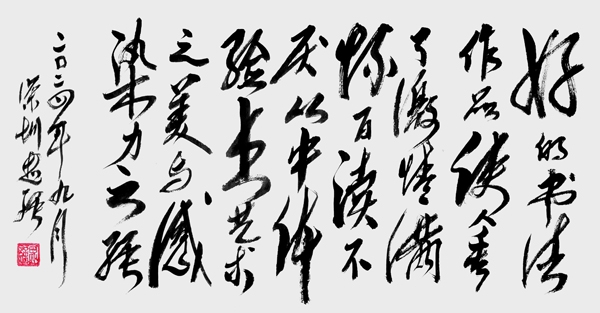 好的书法
作品使人看
了激情满
怀百读不
厌从中体
验出艺术
之美与感
染力之强
二〇二四年九月
深圳